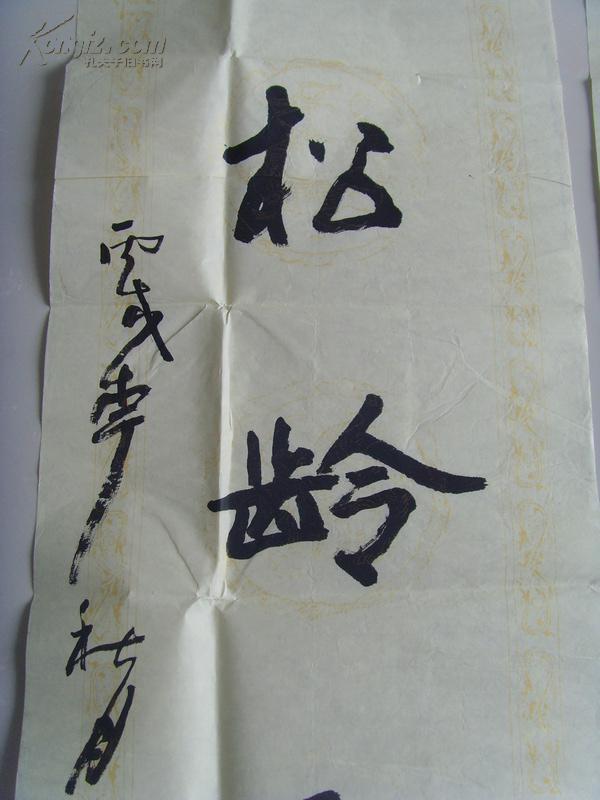 松龄
丙戌年秋月
Kongfz.com
孔夫子旧书网